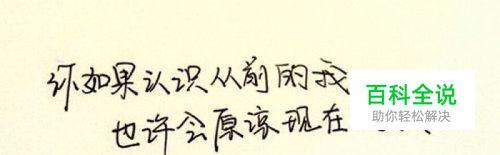 你如果认识从前的我
也许会原谅现在
百科全说
助你轻松解决